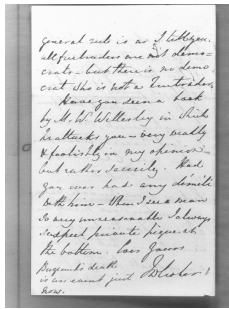 general rule is as I tell you.
all freetraders are not demo-
crats - but there is no demo
crat who is not a Freetrader.
Have you seen a book
by M. W. Wellesley in which
he attacks you - very madly
& foolishly in my opinion
but rather severely. Had
you ever had any démêlé
with him - When I see a man
so very unreasonable I always
suspect private pique at
the bottom. Ever Yours
death
is an event just
now.